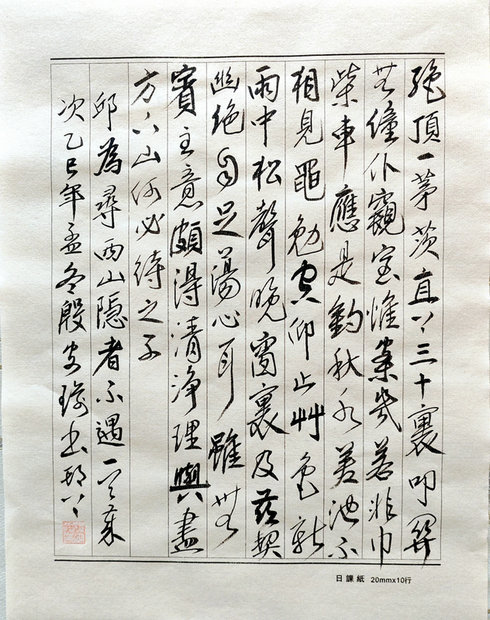 絕頂一茅茨直上三十裏叩關
無僮仆窺室惟案幾若非巾
柴車應是釣秋水差池不
相見黽勉空仰止艸色新
雨中松聲晚窗裏及茲契
幽絕自足湯心耳雖無
賓主意頗淂清净理興盡
方下山何必待之子
邱為尋西山隱者不遇一首歲
次乙巳年孟冬殷書
日課紙 20mm×10行